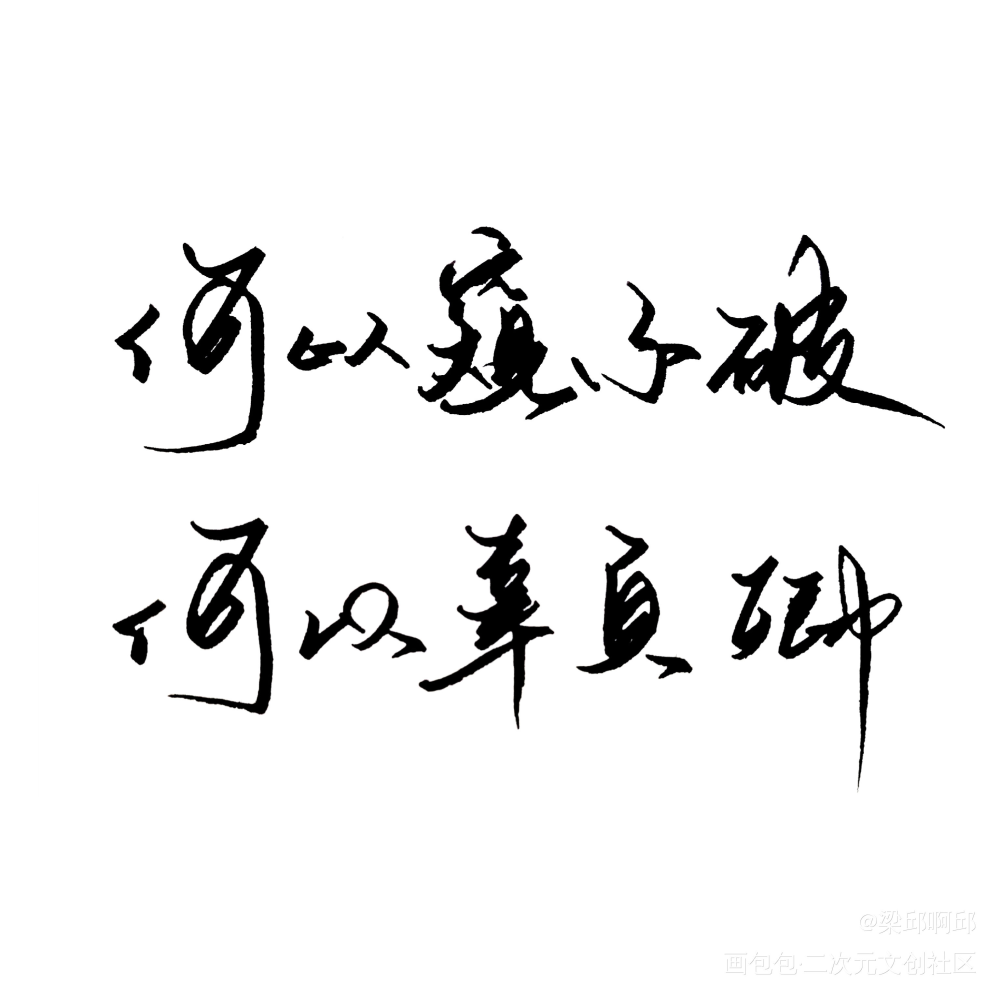 何以窥不破
何以辜负卿
@梁邱啊邱
画包包·二次元文创社区